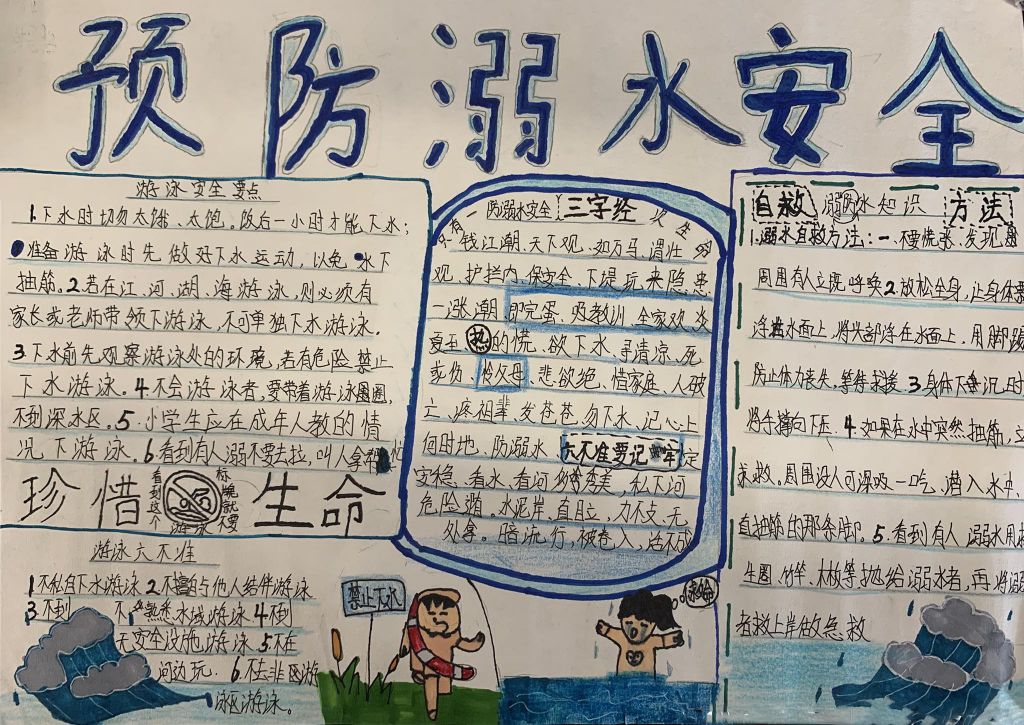 预防溺水安全
游泳安全要点
1.下水时切勿太饿、太饱。饭后一小时才能下水;
准备游泳时先做好下水运动,以免水下
抽筋。2.若在江、河、湖、海游泳、则必须有
家长或老师带领下游泳,不可单独下水游泳。
3.下水前先观察游泳处的环境,若有危险禁止
下水游泳。4.不会游泳者,要带着游泳圈,
不到深水区。5.小学生应在成年人教的情
况下游泳。6.看到有人溺不要去拉,叫人拿
珍惜
看到这个
标
就不要
游泳
生命
游泳六不准
1不私自下水游泳2不擅自与他人结伴游泳
3不到 不熟悉水域游泳4不到
无安全设施游泳5不在
河边玩.6.不去非因游
泳区游泳。
防溺水安全三字经
只有一次生命
钱江潮、天下观、如万马、谓壮
观、护拦内、保安全、下堤玩来隐患
一涨潮、即完蛋、吸教训、全家欢、炎
夏至热的慌、欲下水、寻清凉、死
或伤、怜父母、悲欲绝、惜家庭、人破
亡、疼祖辈、发苍苍、勿下水、记心上
何时地、防溺水、六不准要记牢定
安稳、看水、看河秀美,私下河
危险。水泥岸、直且立,力不支、无
处拿。暗流行,被卷入,治不成
禁止下水
救命
自救溺水知识方法
1.溺水自救方法:一、不要慌张、发现
周围有人立既呼唤2放松全身,让身体
浮在水面上,将头部浮在水面上,用脚踢
防止体力丧失,等待求援、3.身体下沉时
将手撑向下压.4.如果在水中突然抽筋,立
求救。周围没人可深吸一口气,潜入水中、
直抽筋的那条脚。5.看到有人溺水用
生圈、竹竿、木板等抛给溺水者,再将溺
者救上岸做急救